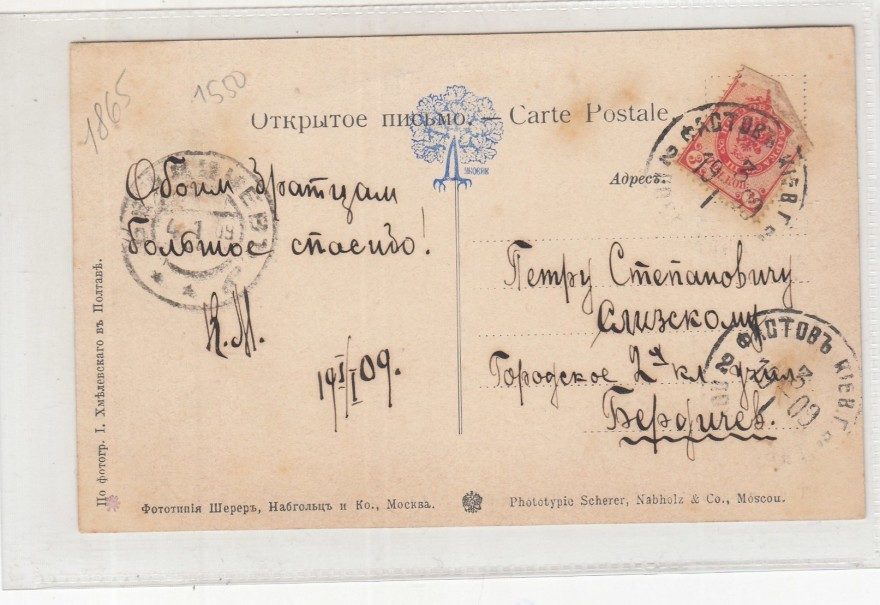 1865
1550
Открытое письмо. — Carte Postale.
Адресъ
Обоим братцам
большое спасибо!
К.М.
19 I/I 09.
Петру Степановичу
Слизскому
Городское 2х кл. учил.
Бердичев.
По фотогр. І. Хмѣлевскаго въ Полтавѣ.
Фототипія Шереръ, Набгольцъ и Ко., Москва.
Phototypie Scherer, Nabholz & Co., Moscou.
ФАСТОВЪ КІЕВ.Г
ФАСТОВЪ КІЕВ.Г